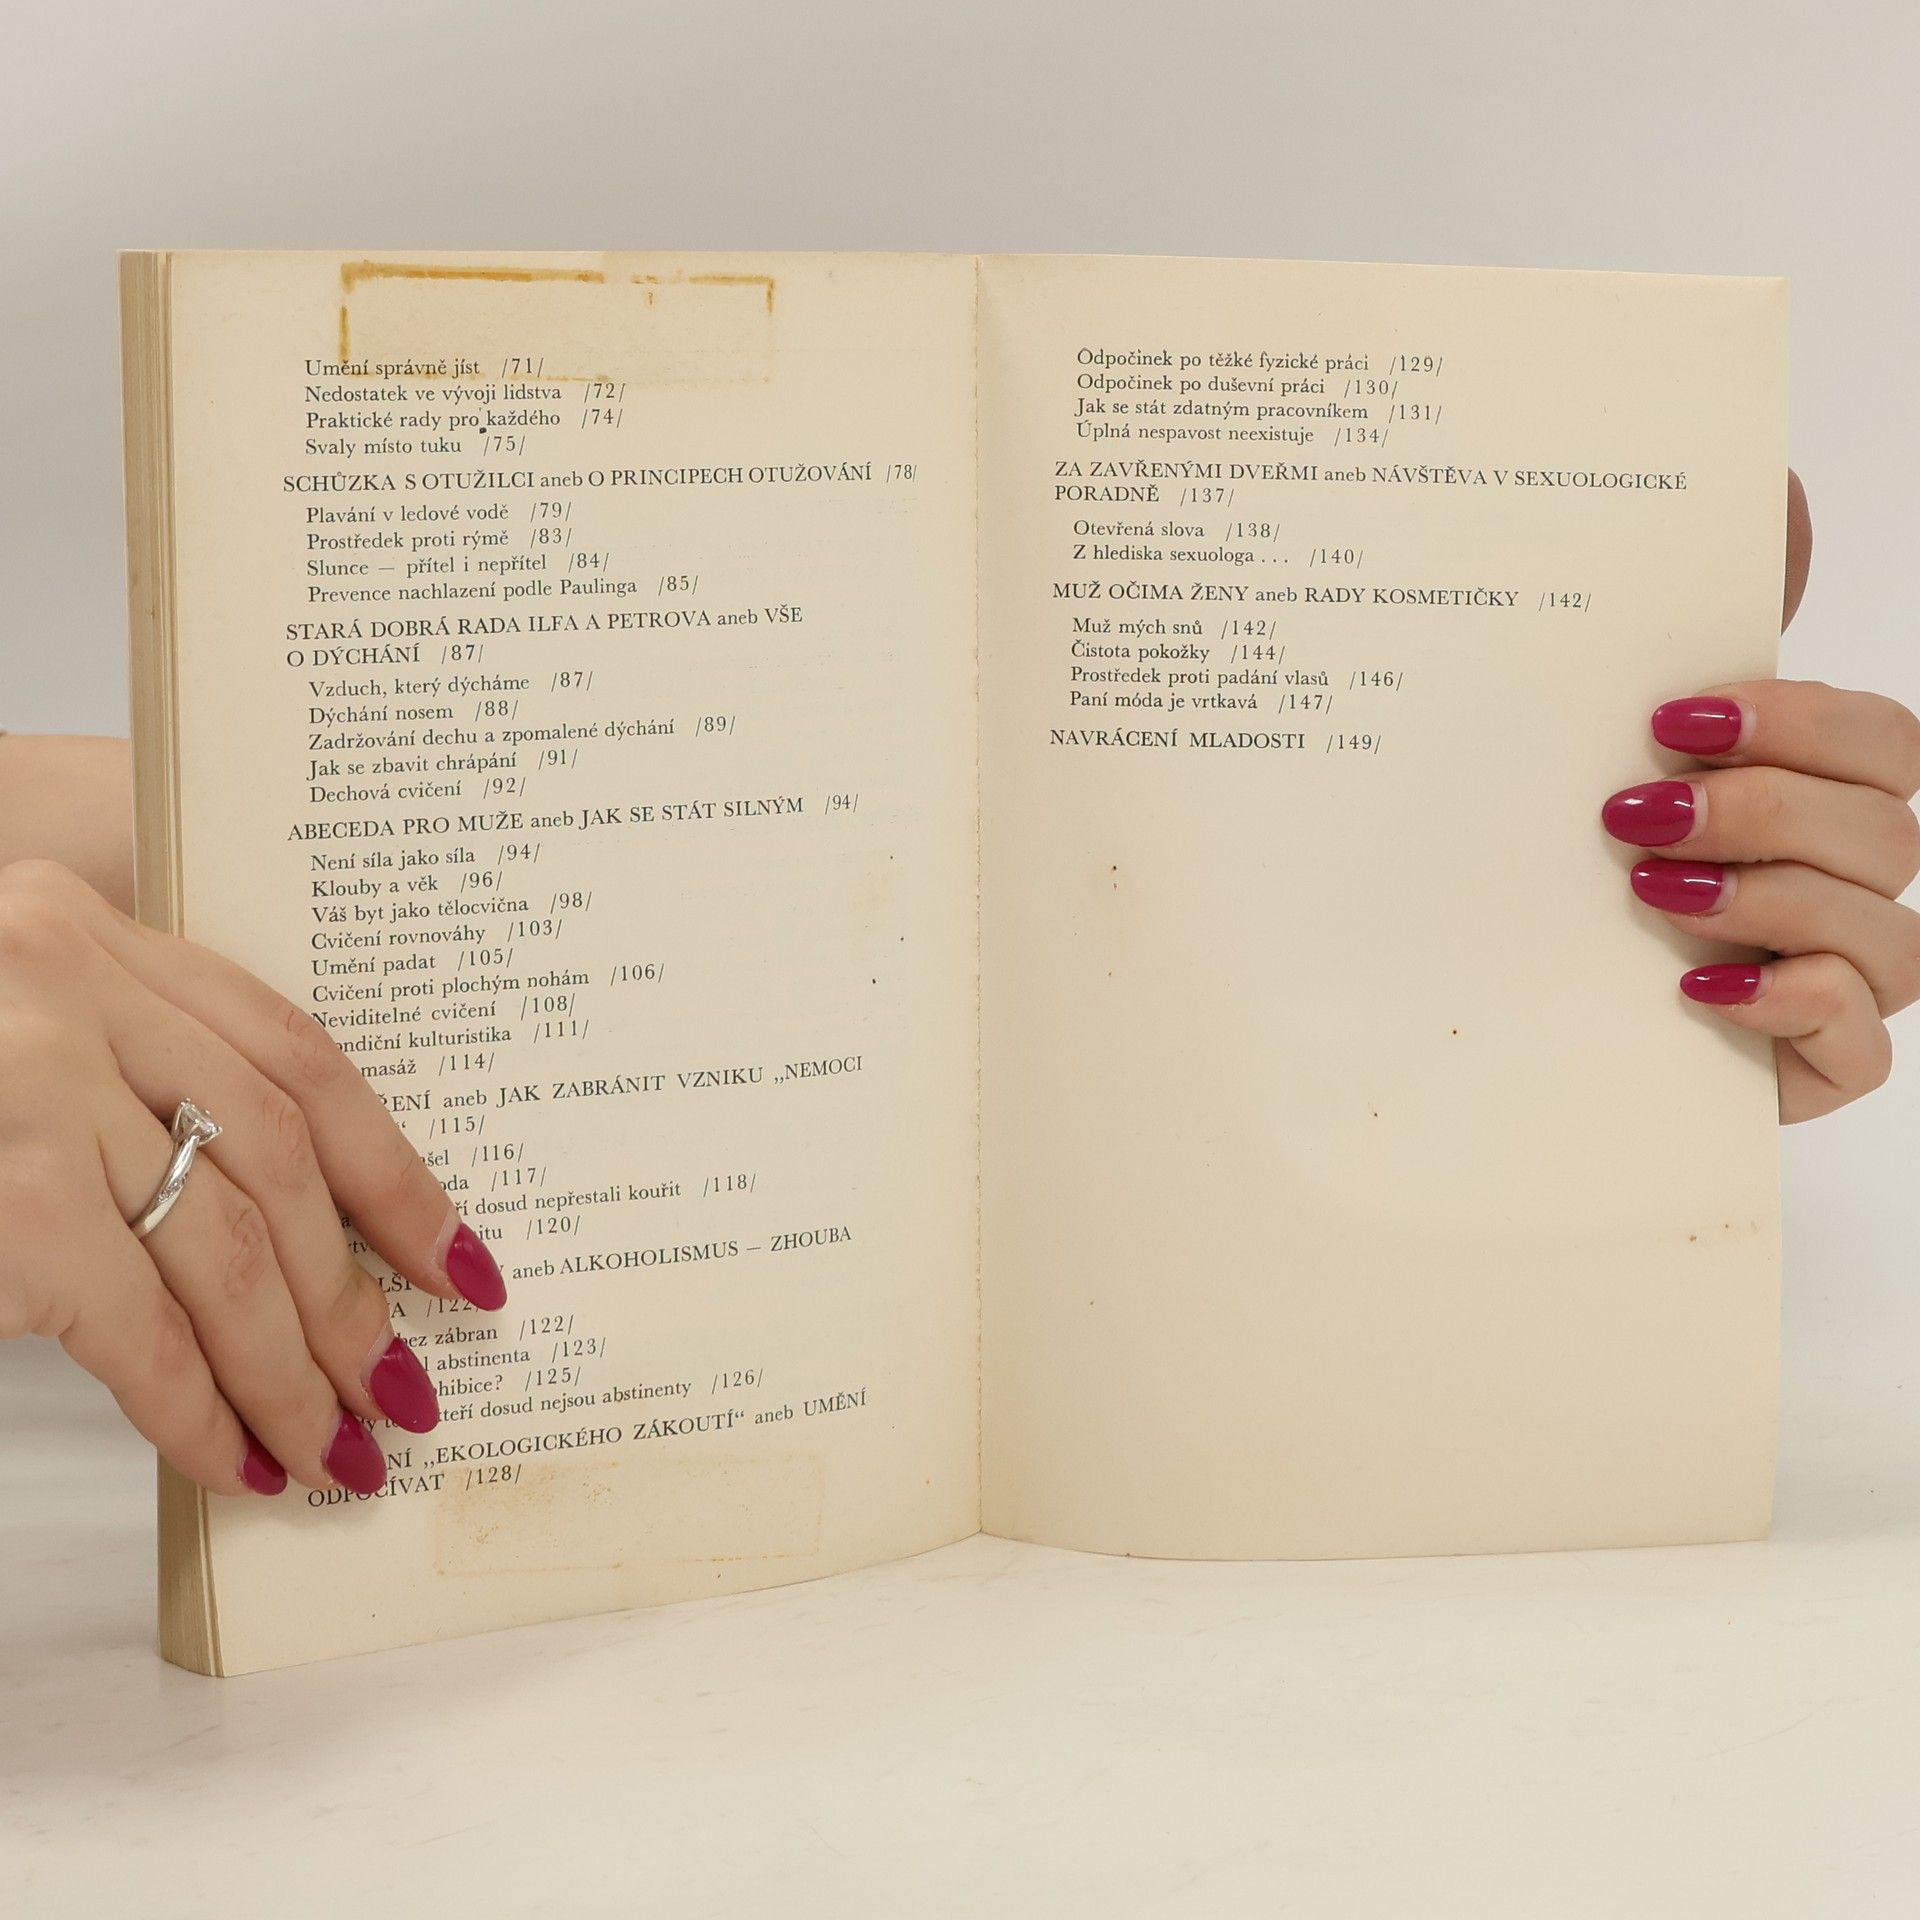 Umění správně jíst /71/
Nedostatek ve vývoji lidstva /72/
Praktické rady pro každého /74/
Svaly místo tuku /75/
SCHŮZKA S OTUŽILCI aneb O PRINCIPECH OTUŽOVÁNÍ /78/
Plavání v ledové vodě /79/
Prostředek proti rýmě /83/
Slunce — přítel i nepřítel /84/
Prevence nachlazení podle Paulinga /85/
STARÁ DOBRÁ RADA ILFA A PETROVA aneb VŠE
O DÝCHÁNÍ /87/
Vzduch, který dýcháme /87/
Dýchání nosem /88/
Zadržování dechu a zpomalené dýchání /89/
Jak se zbavit chrápání /91/
Dechová cvičení /92/
ABECEDA PRO MUŽE aneb JAK SE STÁT SILNÝM /94/
Není síla jako síla /94/
Klouby a věk /96/
Váš byt jako tělocvična /98/
Cvičení rovnováhy /103/
Umění padat /105/
Cvičení proti plochým nohám /106/
Neviditelné cvičení /108/
kulturistika /111/
masáž /114/
aneb JAK ZABRÁNIT VZNIKU „NEMOCI
/115/
/116/
/117/
dosud nepřestali kouřit /118/
/120/
aneb ALKOHOLISMUS — ZHOUBA
/122/
bez zábran /122/
abstinenta /123/
/125/
kteří dosud nejsou abstinenty /126/
„EKOLOGICKÉHO ZÁKOUTÍ“ aneb UMĚNÍ
ODPOČÍVAT /128/
Odpočinek po těžké fyzické práci /129/
Odpočinek po duševní práci /130/
Jak se stát zdatným pracovníkem /131/
Úplná nespavost neexistuje /134/
ZA ZAVŘENÝMI DVEŘMI aneb NÁVŠTĚVA V SEXUOLOGICKÉ
PORADNĚ /137/
Otevřená slova /138/
Z hlediska sexuologa . . . /140/
MUŽ OČIMA ŽENY aneb RADY KOSMETIČKY /142/
Muž mých snů /142/
Čistota pokožky /144/
Prostředek proti padání vlasů /146/
Paní móda je vrtkavá /147/
NAVRÁCENÍ MLADOSTI /149/